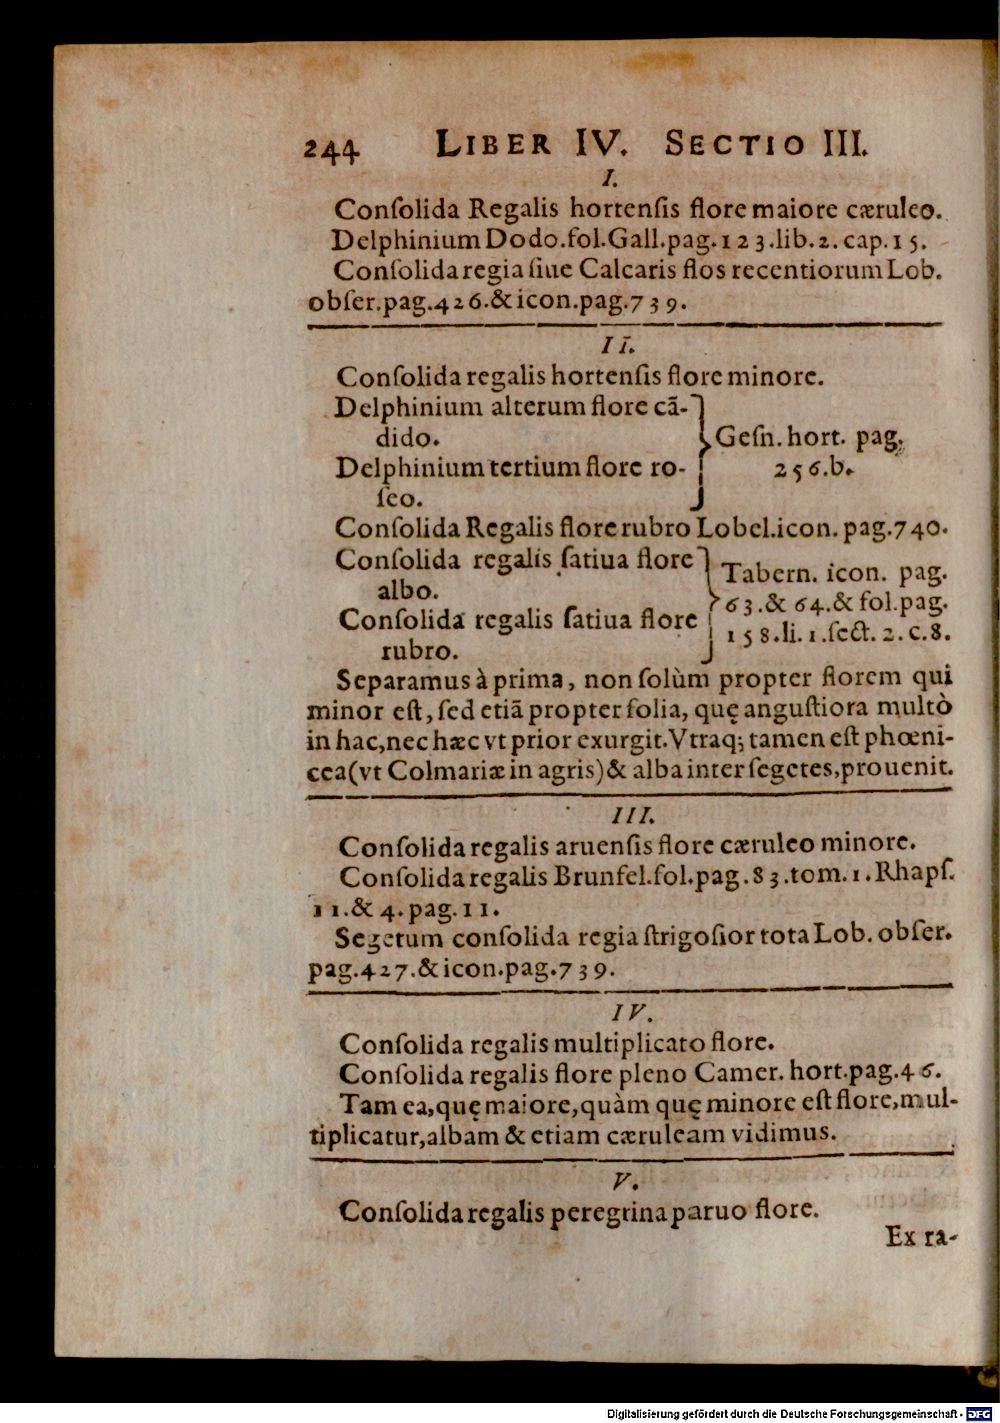 244 LIBER IV. SECTIO III.
I.
Conſolida Regalis hortenſis flore maiore cæruleo.
Delphinium Dodo.fol.Gall.pag.123.lib.2.cap.15.
Conſolida regia ſiue Calcaris flos recentiorum Lob.
obſer.pag.426.& icon.pag.739.
II.
Conſolida regalis hortenſis flore minore.
Delphinium alterum flore cã-
dido.
Delphinium tertium flore ro-
ſeo.
Geſn. hort. pag.
256.b.
Conſolida Regalis flore rubro Lobel.icon. pag.740.
Conſolida regalis ſatiua flore
albo.
Conſolida regalis ſatiua flore
rubro.
Tabern. icon. pag.
63.& 64.& fol.pag.
158.li.1.ſect. 2. c.8.
Separamus à prima, non ſolùm propter florem qui
minor eſt, ſed etiã propter folia, quę anguſtiora multò
in hac, nec hæc vt prior exurgit. Vtraq; tamen eſt phœni-
cea (vt Colmariæ in agris) & alba inter ſegetes, prouenit.
III.
Conſolida regalis aruenſis flore cæruleo minore.
Conſolida regalis Brunfel.fol.pag.83.tom.1.Rhapſ.
11.& 4.pag.11.
Segetum conſolida regia ſtrigoſior tota Lob. obſer.
pag.427.& icon.pag.739.
IV.
Conſolida regalis multiplicato flore.
Conſolida regalis flore pleno Camer. hort.pag.46.
Tam ea, quę maiore, quàm quę minore eſt flore, mul-
tiplicatur, albam & etiam cæruleam vidimus.
V.
Conſolida regalis peregrina paruo flore.
Ex ra-
Digitalisierung gefördert durch die Deutsche Forschungsgemeinschaft - DFG